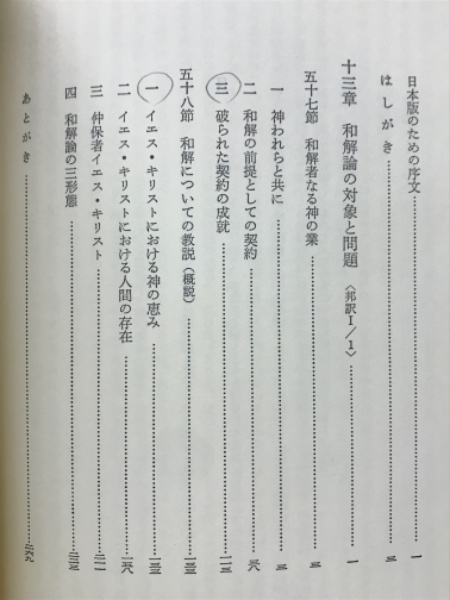 日本版のための序文……一
はしがき……三
十三章 和解論の対象と問題〈邦訳Ⅰ/1〉……一
五十七節 和解者なる神の業……三
一 神われらと共に……三
二 和解の前提としての契約……三八
三 破られた契約の成就……一一三
五十八節 和解についての教説(概説)……一三三
一 イエス・キリストにおける神の恵み……一三三
二 イエス・キリストにおける人間の存在……一五八
三 仲保者イエス・キリスト……二一一
四 和解論の三形態……二三二
あとがき……二六九